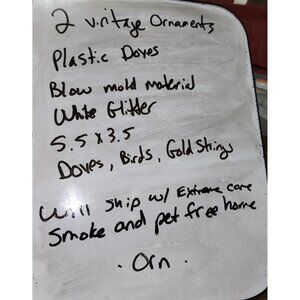 2 vintage Ornaments
Plastic Doves
Blow mold material
White Glitter
5.5 x 3.5
Doves, Birds, Gold Strings
Will ship w/ Extreme care
Smoke and pet free home
. Orn .